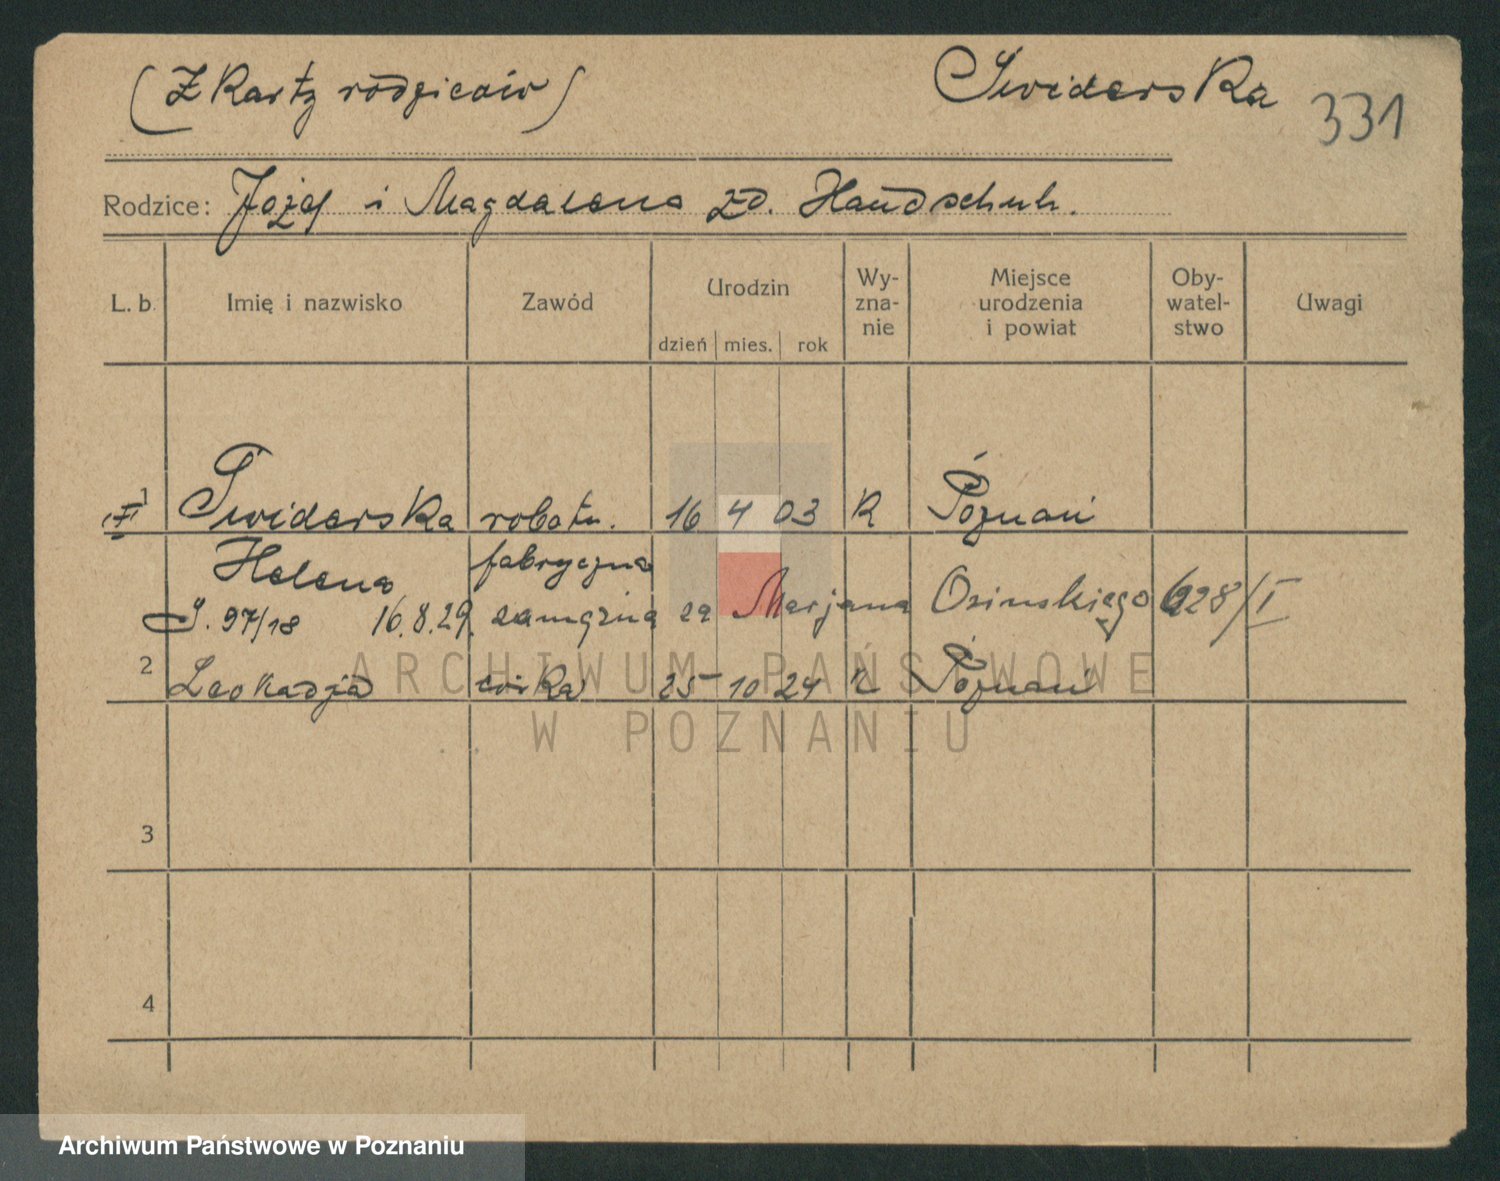 (Z Karty rodziców)
Swiderska
331
Rodzice: Józef i Magdalena zd. Handschuh.
L. b. Imię i nazwisko Zawód Urodzin Wy-zna-nie Miejsce urodzenia i powiat Oby-watel-stwo Uwagi
dzień mies. rok
1 Swiderska robotn. 16 4 03 R Poznań
Helena fabryczna
S. 97/18 16.8.29. zamężna za Marjana Osinskiego 628/I
2 Leokadja córka 25 10 24 R Poznań
3
4
ARCHIWUM PAŃSTWOWE
W POZNANIU
Archiwum Państwowe w Poznaniu